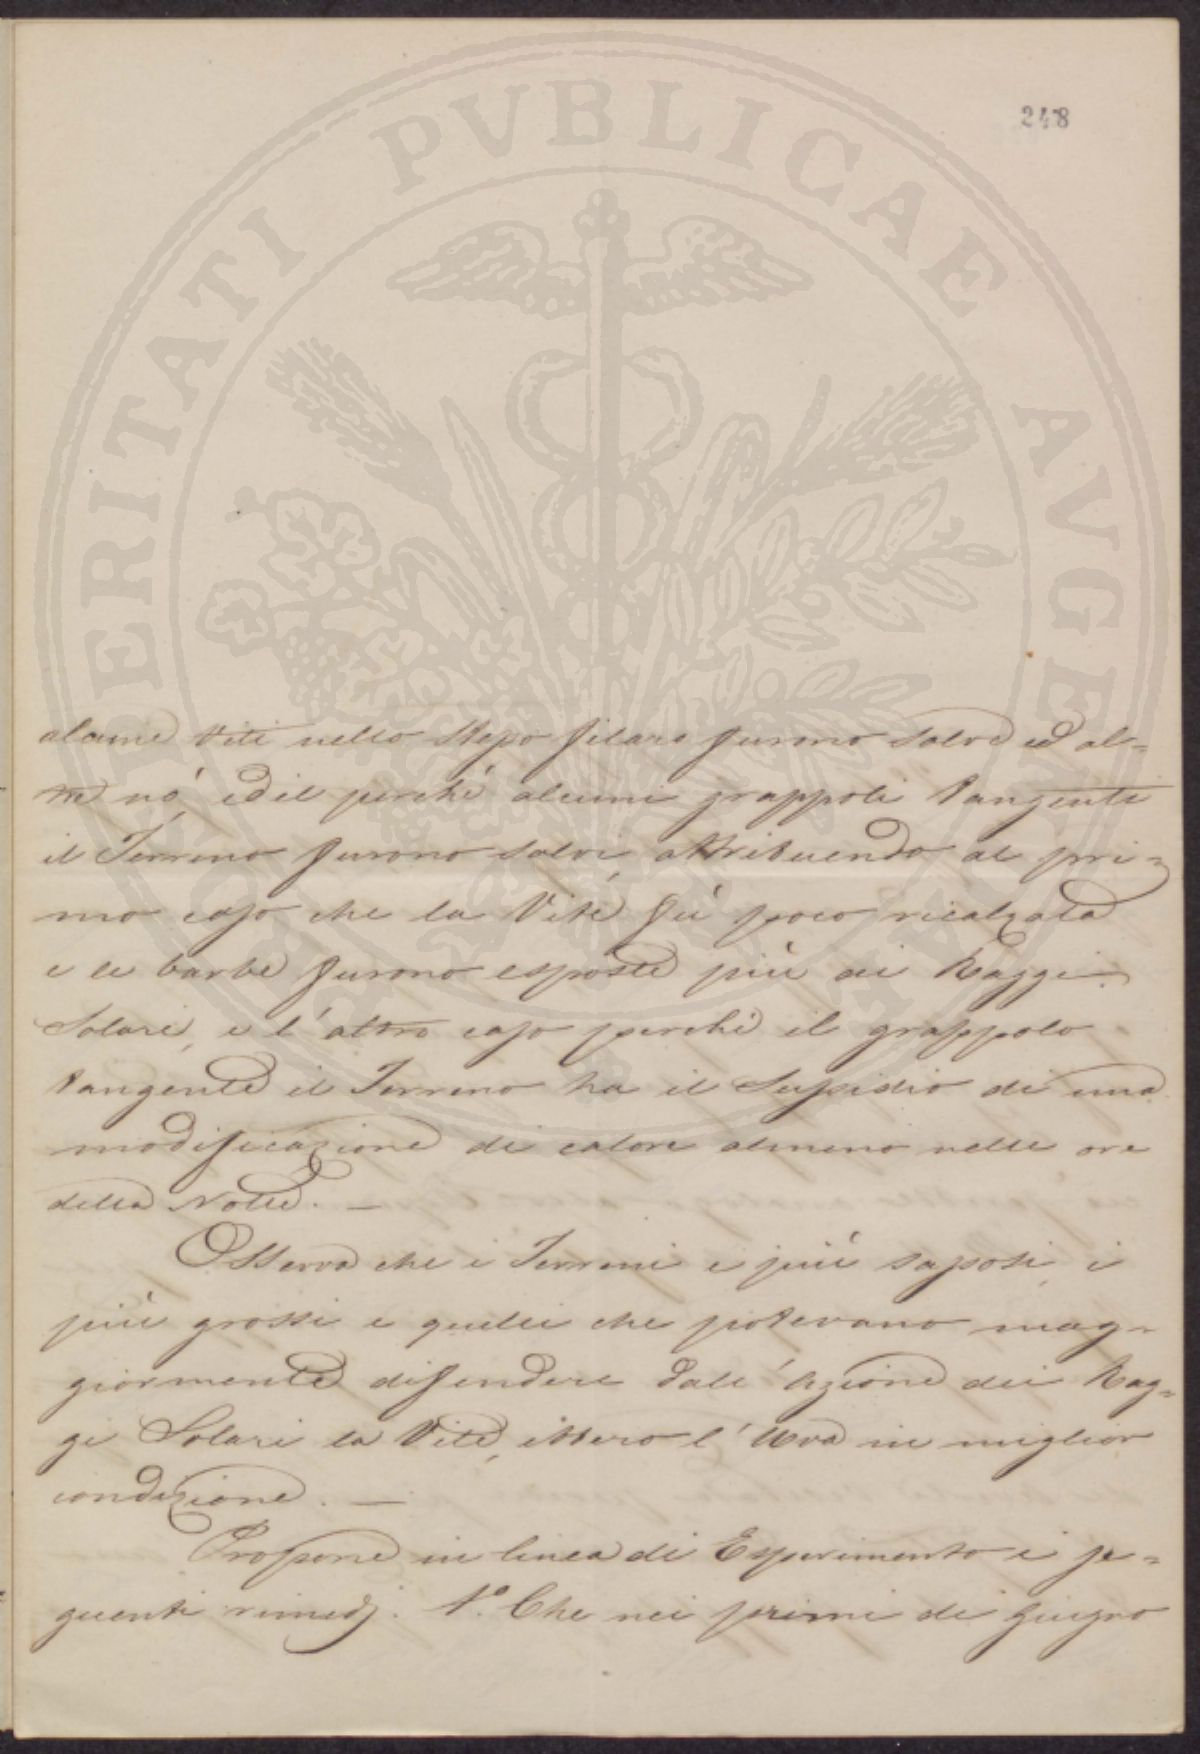 248
PROSPERITATI PVBLICAE AVGENDAE
alcune Viti nello Stesso filare furono salve ed al=
tre nó ed il perchè alcuni grappoli tangenti
il Terreno furono salvi attribuendo al pri=
mo caso che la Vite fù poco ricalzata
e le barbe furono esposte più ai Raggi
Solari, e l'altro caso perchè il grappolo
tangente il Terreno ha il Sussidio di una
modificazione di calore almeno nelle ore
della Notte. —
Osserva che i Terreni i più sassosi, i
più grossi e quelli che potevano mag=
giormente difendere dall'Azione dei Rag=
gi Solari la Vite, ebbero l'Uva in miglior
condizione. —
Propone in linea di Esperimento i se=
guenti rimedj. 1.° Che nei primi di Giugno